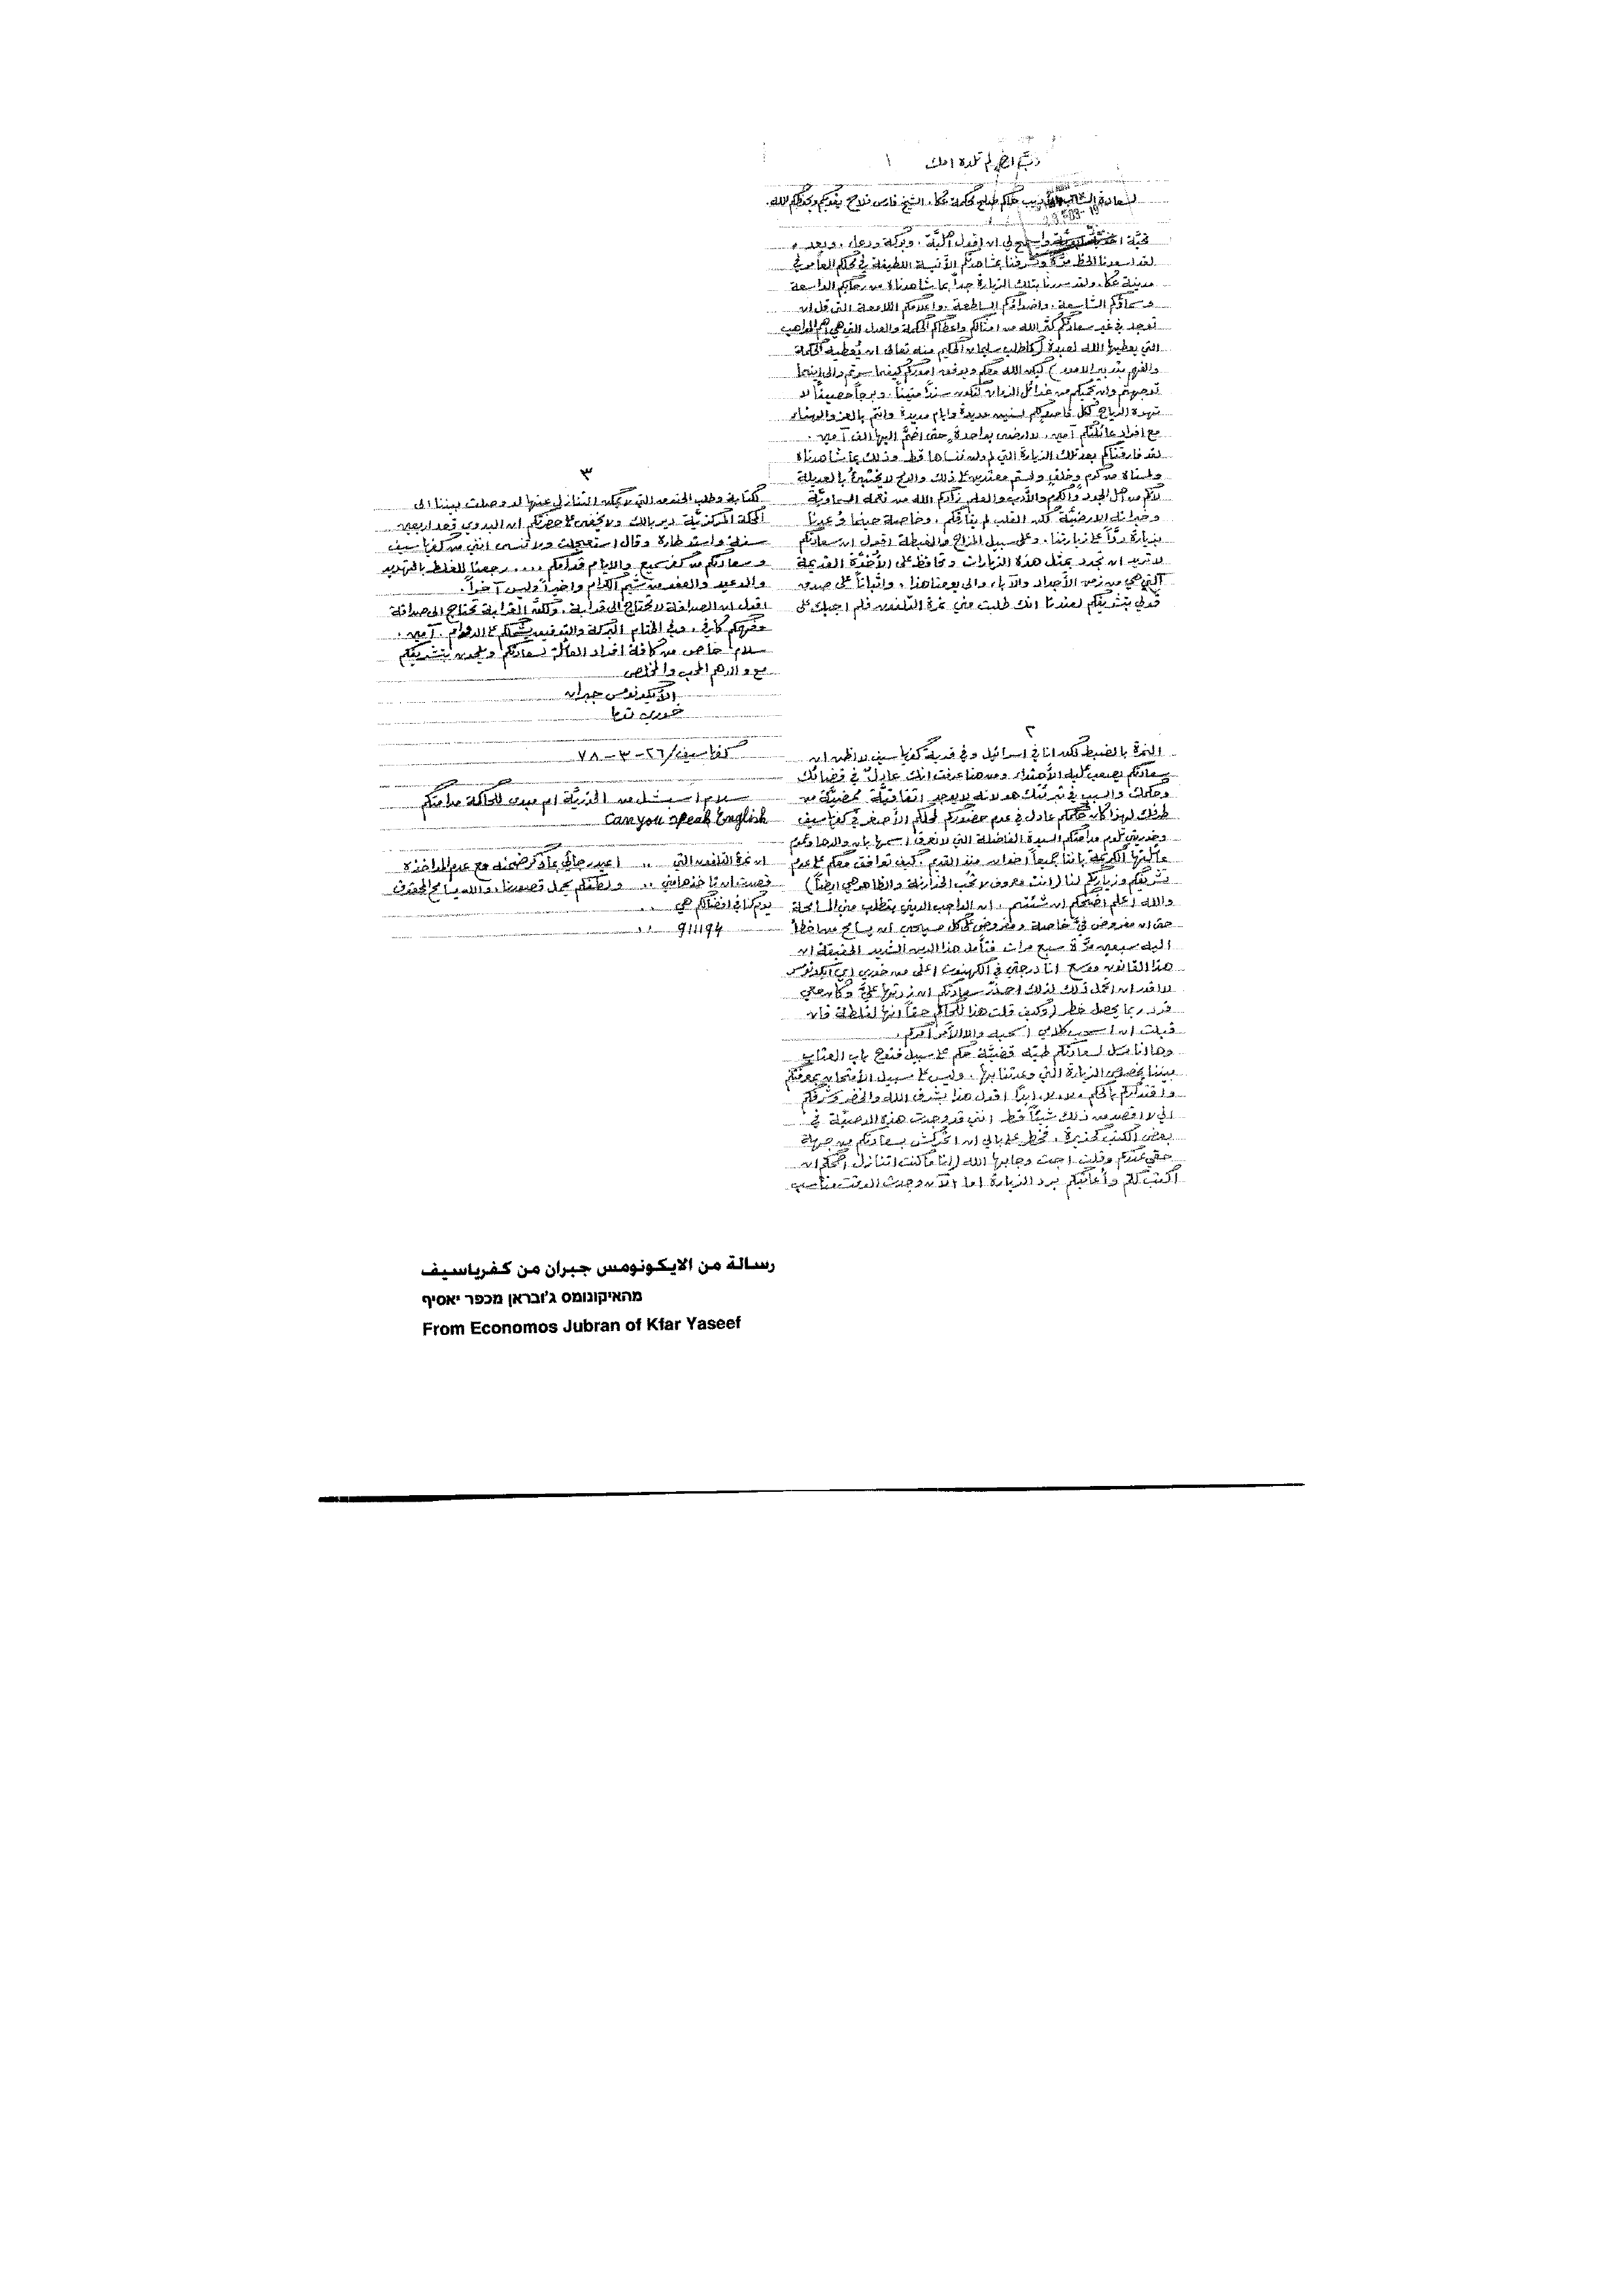 ربَّ اخٍ لم تلده امك ١
لسعادة حاكم صلح محكمة عكا، الشيخ فارس فلاح يقويكم ويحفظكم الله.
تحيَّة واسمح لي ان اقول اهليَّة، وبركة ودعاء، وبعد،
لقد اسعدنا الحظ مرَّة وتشرفنا بمشاهدتكم الأنيسة اللطيفة في محلكم العامر في
مدينة عكا، ولقد سررنا بتلك الزيارة جداً بما شاهدناه من رحابكم الواسعة
وسماؤكم الشاسعة، واضواؤكم الساطعة، واعلامكم اللامعة التي قل ان
توجد في غير سعادتكم كثَّر الله من امثالكم واعطاكم الحكمة والعدل التي هي اهم المواهب
التي يعطيها الله لعبده (كما طلب سليمان الحكيم منه تعالى ان يُعطيه الحكمة
والفهم بتدبير الامور) ليكن الله معكم ويوفق اموركم كيفما سرتم والى اينما
توجهتم وان يحميكم من غدائل الزمان لتكون سنداً متيناً، وبرجاً حصيناً لا
تهزه الرياح لكل قاصديكم لسنين عديدة وايام مديدة وانتم بالعز والهناء
مع افراد عائلتكم آمين، لا ارضى بواحدةٍ حتى اضمَّ اليها الف آمين.
لقد فارقناكم بعد تلك الزيارة التي لم ولن ننساها قط وذلك بما شاهدناه
ولمسناه من كرم وخلقٍ ولستم معتدين على ذلك
لأنكم من اهل الجود والكرم والأدب والعلم زادكم الله من نعمه السماويَّة
وخيراته الارضيَّة لكن القلب لم يفارقكم، وخاصة حينما وُعدنا
بزيارة ردَّاً على زيارتنا، وعلى سبيل المزاح والغبطة اقول ان سعادتكم
لا تريد ان تجدد بمثل هذه الزيارات وتحافظ على الأخوَّة القديمة
التي هي من زمن الأجداد والآباء والى يومنا هذا، واثباتاً على صدق
قولي بتشريفكم لعندنا انك طلبت مني نمرة التلفون فلم اجبك على
٢
النمرة بالضبط لكن انا في اسرائيل وفي قرية كفرياسيف لا اظن ان
سعادتكم يصعب عليه الأهتداء ومن هنا عرفت انك عادل في قضائك
وحكمك والسبب في تبرئتك هو لانه لا يوجد اتفاقيَّة ممضيَّة من
طرفك لهذا كان حكمكم عادل في عدم حضوركم لمحلكم الأصغر في كفرياسيف
وخوريتي تلوم مدامتكم السيدة الفاضلة التي لا نعرف اسمها بان والدها وعموم
عائلتها الكريمة باننا جميعاً اخوان منذ القديم، كيف توافق معكم على عدم
تشريفكم وزيارتكم لنا (انت معروف لا تحب الخوارنة والظاهر هي ايضاً)
والله اعلم اضحكم ان شئتم، ان الواجب الديني يتطلب مني المسامحة
حتى ان مفروض فيَّ خاصة ومفروض على كل مسيحي ان يسامح من اخطأ
اليه سبعين مرَّة سبع مرات فتأمل هذا الدين الشديد الحقيقة ان
هذا القانون ومع انا درجتي في الكهنوت اعلى من خوري اي ايكونومس
لا اقدر ان احمل ذلك لذلك احذر سعادتكم ان زدتوها عليَّ وكان معي
فرد ربما يحصل خطر (وكيف قلت هذا للحاكم حقاً انها لغلطة فان
قبلت ان اسحب كلامي اسحبه والا الأمر امركم.
وها انا مرسل لسعادتكم طيَّه قضيَّة حكم على سبيل فتوح باب العتاب
بيننا بخصوص الزيارة التي وعدتنا بها، وليس على سبيل الأمتحان بمعرفتكم
واقتداركم بالحكم ولا ولا، ابداً اقول هذا بشرف الله والخضر وشرفكم
اني لا اقصد من ذلك شيئاً قط انني قد وجدت هذه الوصيَّة في
بعض الكتب كحذيرة، فخطر على بالي ان اتحركش بسعادتكم من جهة
حقي عندكم وقلت اجت وجابها الله (انا ما كنت اتنازل اضحك) ان
اكتب لكم وأعاتبكم برد الزيارة اما الآن وجدت الوقت مناسب
٣
لكتابة وطلب الحقوق التي لا يمكن التنازل عنها لو وصلت بيننا الى
المحكمة المركزيَّة دير بالك ولا يخفى على حضرتكم ان البدوي قعد اربعين
سنة واستد طاره وقال استعجلت ولا تنسى انني من كفرياسيف
وسعادتكم من كفرسميع والايام قدامكم .... رجعنا للغلط بالتهديد
والوعيد والعفو من شيم الكرام واخيراً وليس آخراً.
اقول ان الصداقة لا تحتاج الى قرابة، ولكنَّ القرابة تحتاج الى صداقة
وفهمكم كافي، وفي الختام البركة والتوفيق يشملكم على الدوام، آمين.
سلام خاص من كافة افراد العائلة لسعادتكم ويلحون بتشريفكم
مع والدهم المحب والمخلص
الأيكونومس جبران
خوري توما
كفرياسيف/ ٢٦-٣-٧٨
سلام اسبشل من الخوريَّة ام ميدي للحاكمة مدامتكم
Can you speak English
ان نمرة التلفون التي .. اعيد رجائي بما ذكر ضمنه مع عدم المؤاخذة
قصدت ان تاخذها مني .. ولطفكم يحمل قصورنا، والله يسامح الحقوق
يوم كنا في افضالكم هي ..
911194 ..
رسالة من الايكونومس جبران من كفرياسيف
מהאיקונומס ג'ובראן מכפר יאסיף
From Economos Jubran of Kfar Yaseef